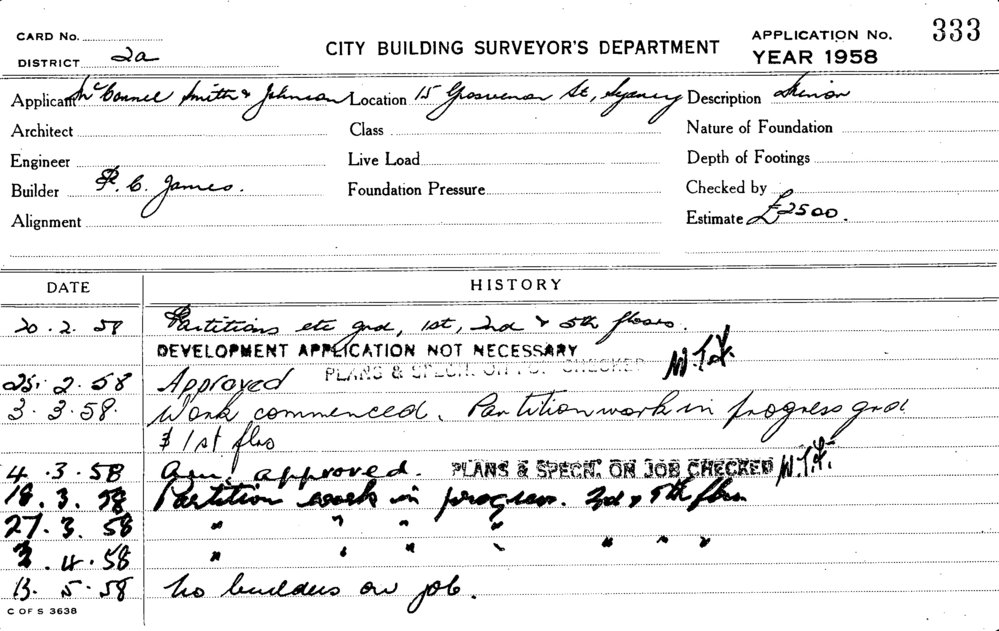 CARD No.
DISTRICT 2a
CITY BUILDING SURVEYOR'S DEPARTMENT
APPLICATION No. 333
YEAR 1958
Applicant McConnel Smith & Johnson Location 15 Grosvenor St, Sydney Description Minor
Architect Class Nature of Foundation
Engineer Live Load Depth of Footings
Builder P. C. James. Foundation Pressure Checked by
Alignment Estimate £2500.
DATE HISTORY
20.2.58 Partitions etc grd, 1st, 2nd & 5th floors.
DEVELOPMENT APPLICATION NOT NECESSARY
25.2.58 Approved PLANS & SPECN. ON JOB CHECKED
3.3.58. Work commenced. Partition work in progress grd
& 1st flrs
4.3.58 approved. PLANS & SPECN. ON JOB CHECKED
18.3.58 Partition work in progress. 2nd & 5th flrs
27.3.58 " " " " " " "
2.4.58 " " " "
13.5.58 No builders on job.
C OF S 3638